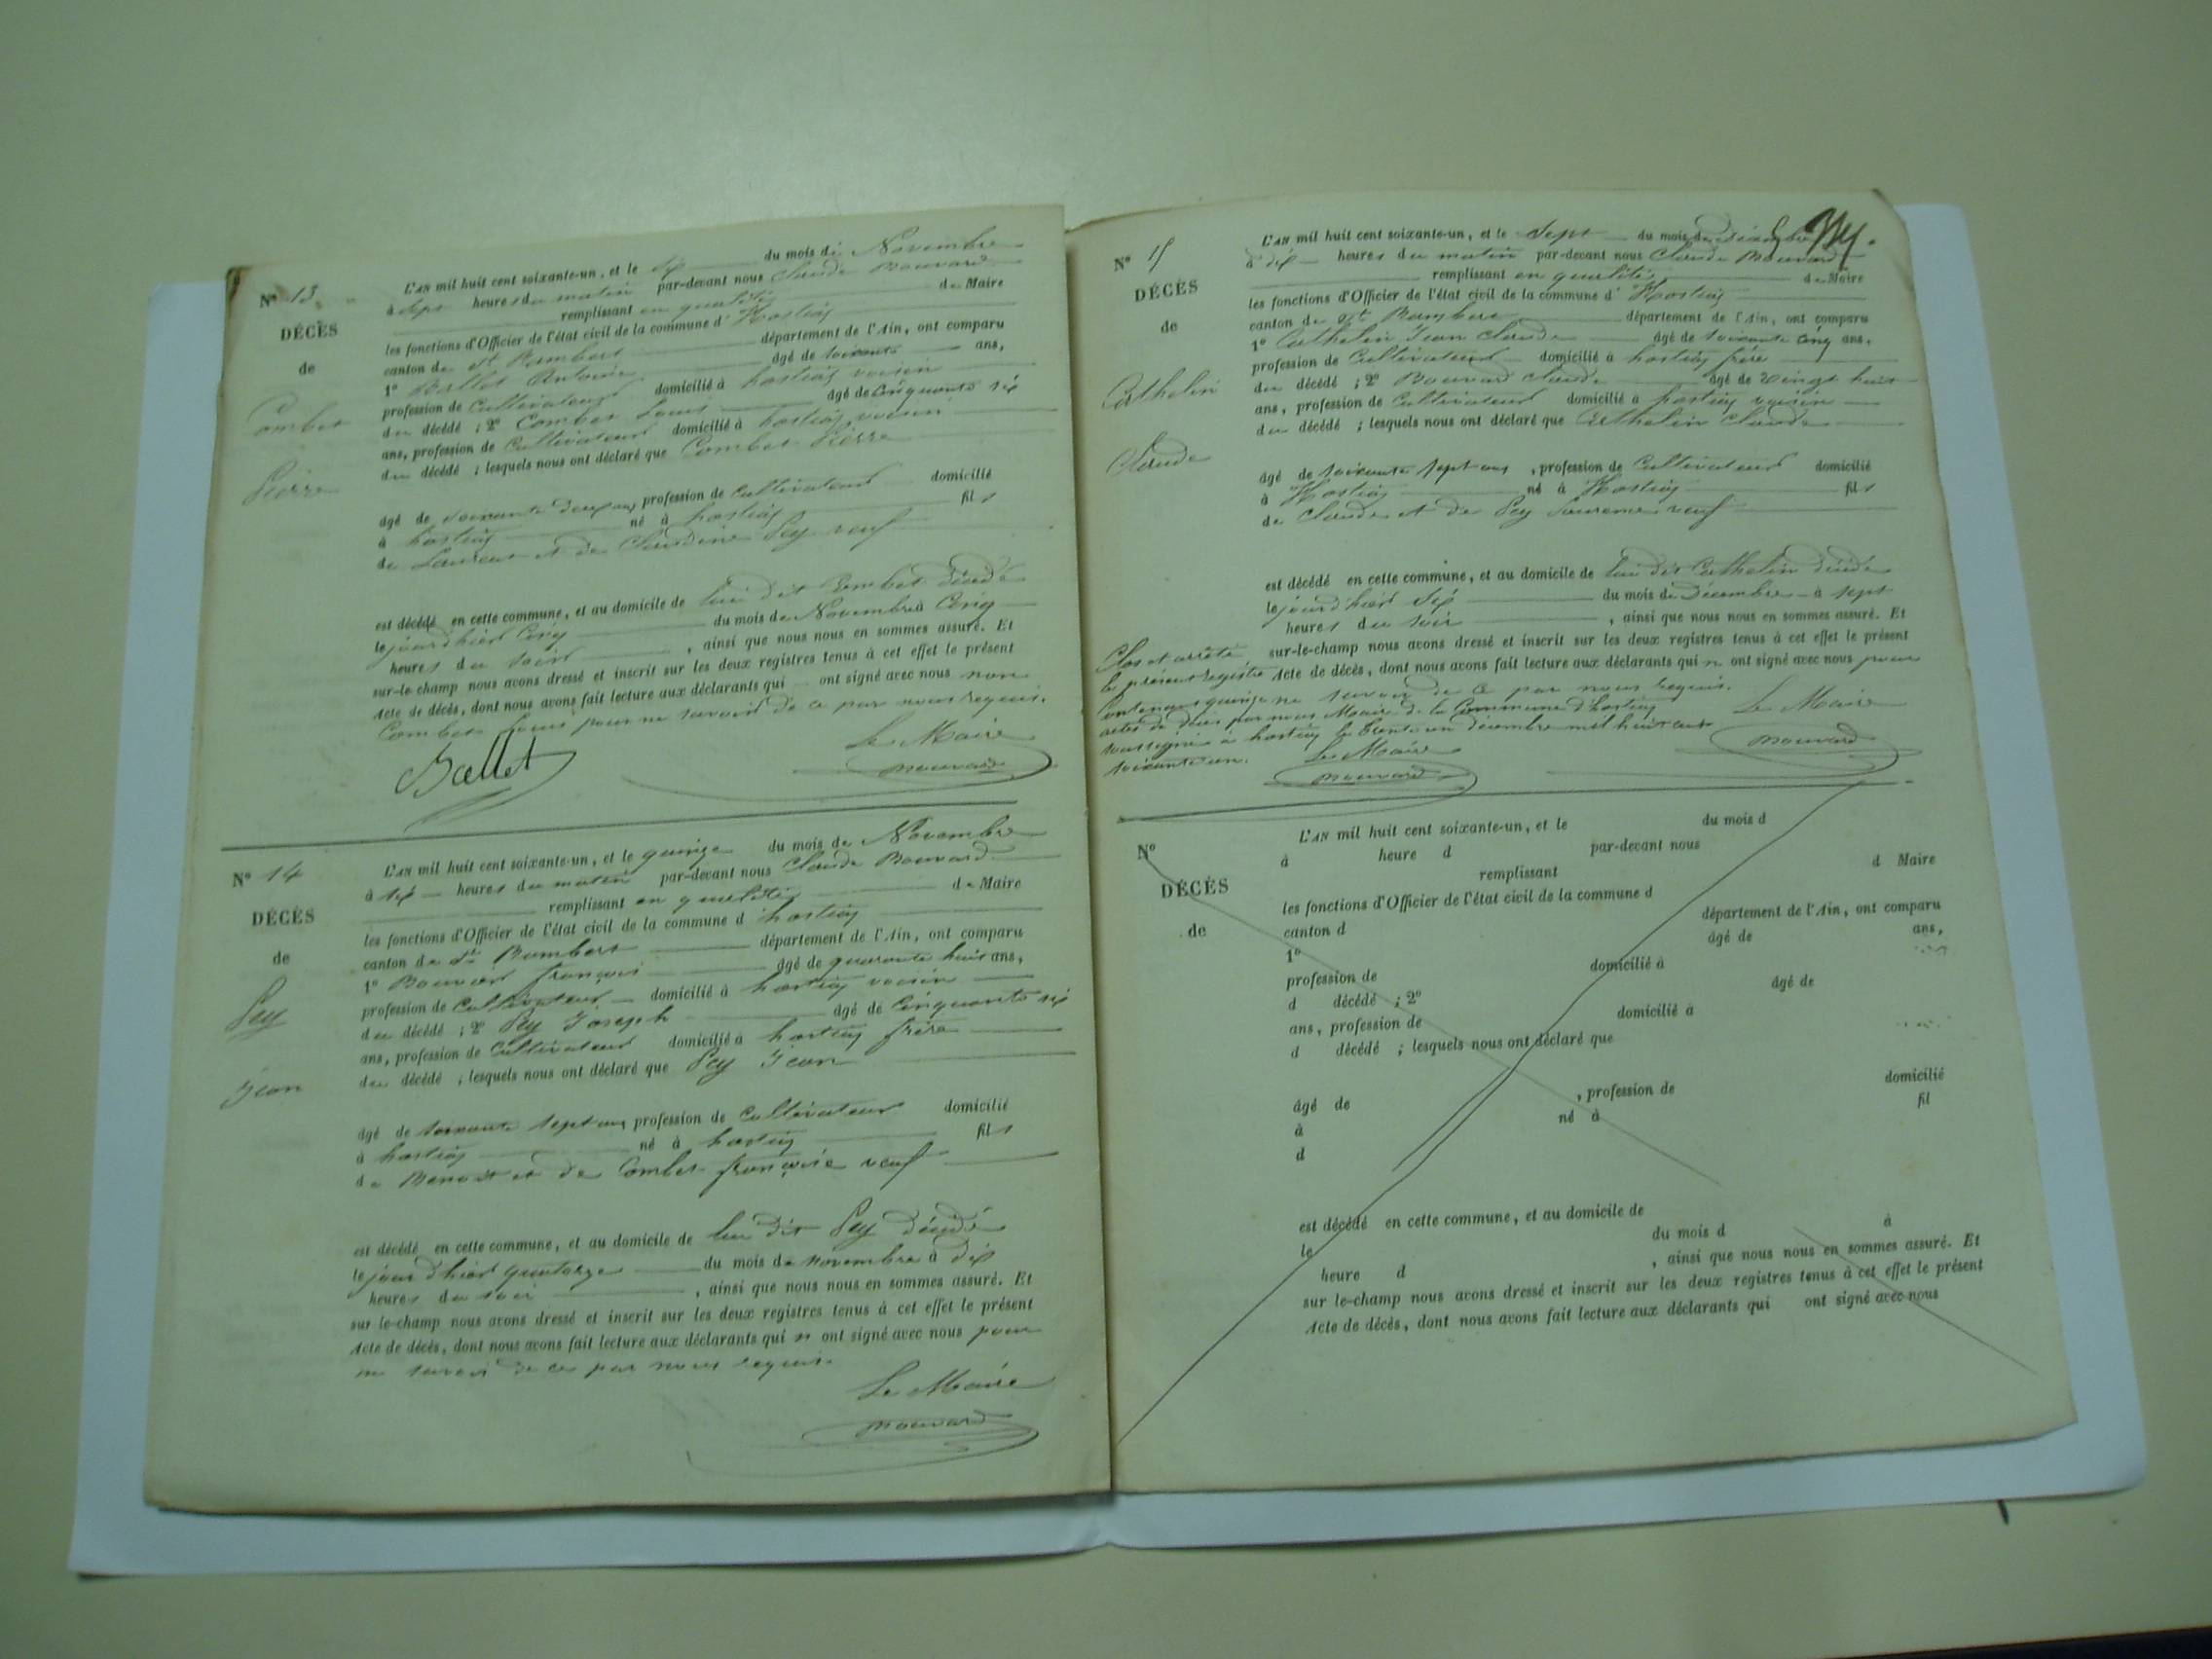 N° 13
DÉCÈS
de
Combet
Pierre
L'AN mil huit cent soixante-un, et le six du mois de Novembre
à sept heures du matin par-devant nous Claude Bouvard
remplissant en qualité de Maire
les fonctions d'Officier de l'état civil de la commune d'Hostiaz
canton de St Rambert département de l'Ain, ont comparu
1° Ballet Antoine âgé de soixante ans,
profession de Cultivateur domicilié à hostiaz voisin
du décédé ; 2° Combet Louis âgé de cinquante six
ans, profession de Cultivateur domicilié à hostiaz voisin
du décédé ; lesquels nous ont déclaré que Combet Pierre
âgé de soixante deux ans, profession de Cultivateur domicilié
à hostiaz né à hostiaz fils
de Laurent et de Claudine Pey veuf
est décédé en cette commune, et au domicile de lui dit Combet décédé
le jour d'hier cinq du mois de Novembre à Cinq
heures du soir , ainsi que nous nous en sommes assuré. Et
sur-le-champ nous avons dressé et inscrit sur les deux registres tenus à cet effet le présent
Acte de décès, dont nous avons fait lecture aux déclarants qui ont signé avec nous non
Combet Louis pour ne savoir de ce par nous requis.
Le Maire
Ballet
Bouvard
N° 14
DÉCÈS
de
Pey
Jean
L'AN mil huit cent soixante-un, et le quinze du mois de Novembre
à six heures du matin par-devant nous Claude Bouvard
remplissant en qualité de Maire
les fonctions d'Officier de l'état civil de la commune d'hostiaz
canton de St Rambert département de l'Ain, ont comparu
1° Bouvard françois âgé de quarante huit ans,
profession de Cultivateur domicilié à hostiaz voisin
du décédé ; 2° Pey Joseph âgé de Cinquante six
ans, profession de Cultivateur domicilié à hostiaz frère
du décédé ; lesquels nous ont déclaré que Pey Jean
âgé de soixante sept ans, profession de Cultivateur domicilié
à hostiaz né à hostiaz fils
de Benoit et de Combet françoise veuf
est décédé en cette commune, et au domicile de lui dit Pey décédé
le jour d'hier quatorze du mois de novembre à dix
heures du soir , ainsi que nous nous en sommes assuré. Et
sur-le-champ nous avons dressé et inscrit sur les deux registres tenus à cet effet le présent
Acte de décès, dont nous avons fait lecture aux déclarants qui n ont signé avec nous pour
ne savoir de ce par nous requis.
Le Maire
Bouvard
N° 15
DÉCÈS
de
Cathelin
Claude
L'AN mil huit cent soixante-un, et le Sept du mois de décembre
à dix heures du matin par-devant nous Claude Bouvard
remplissant en qualité de Maire
les fonctions d'Officier de l'état civil de la commune d'Hostiaz
canton de St Rambert département de l'Ain, ont comparu
1° Cathelin Jean Claude âgé de soixante cinq ans,
profession de Cultivateur domicilié à hostiaz frère
du décédé ; 2° Bouvard Claude âgé de vingt huit
ans, profession de Cultivateur domicilié à hostiaz voisin
du décédé ; lesquels nous ont déclaré que Cathelin Claude
âgé de soixante sept ans, profession de Cultivateur domicilié
à Hostiaz né à Hostiaz fils
de Claude et de Pey veuf
est décédé en cette commune, et au domicile de lui dit Cathelin décédé
le jour d'hier six du mois de Décembre à sept
heures du soir , ainsi que nous nous en sommes assuré. Et
sur-le-champ nous avons dressé et inscrit sur les deux registres tenus à cet effet le présent
Acte de décès, dont nous avons fait lecture aux déclarants qui n ont signé avec nous pour
ne savoir de ce par nous requis.
Le Maire
Bouvard
Clos et arrêté
le présent registre
contenant quinze
actes de décès par nous Maire de la Commune d'hostiaz
soussigné à hostiaz le trente un décembre mil huit cent
soixante un.
Le Maire
Bouvard
N°
DÉCÈS
de
L'AN mil huit cent soixante-un, et le du mois d
à heure d par-devant nous
remplissant d Maire
les fonctions d'Officier de l'état civil de la commune d
canton d département de l'Ain, ont comparu
1° âgé de ans,
profession de domicilié à
d décédé ; 2° âgé de
ans, profession de domicilié à
d décédé ; lesquels nous ont déclaré que
âgé de , profession de domicilié
à né à fil
d
est décédé en cette commune, et au domicile de
le du mois d à
heure d , ainsi que nous nous en sommes assuré. Et
sur le-champ nous avons dressé et inscrit sur les deux registres tenus à cet effet le présent
Acte de décès, dont nous avons fait lecture aux déclarants qui ont signé avec nous